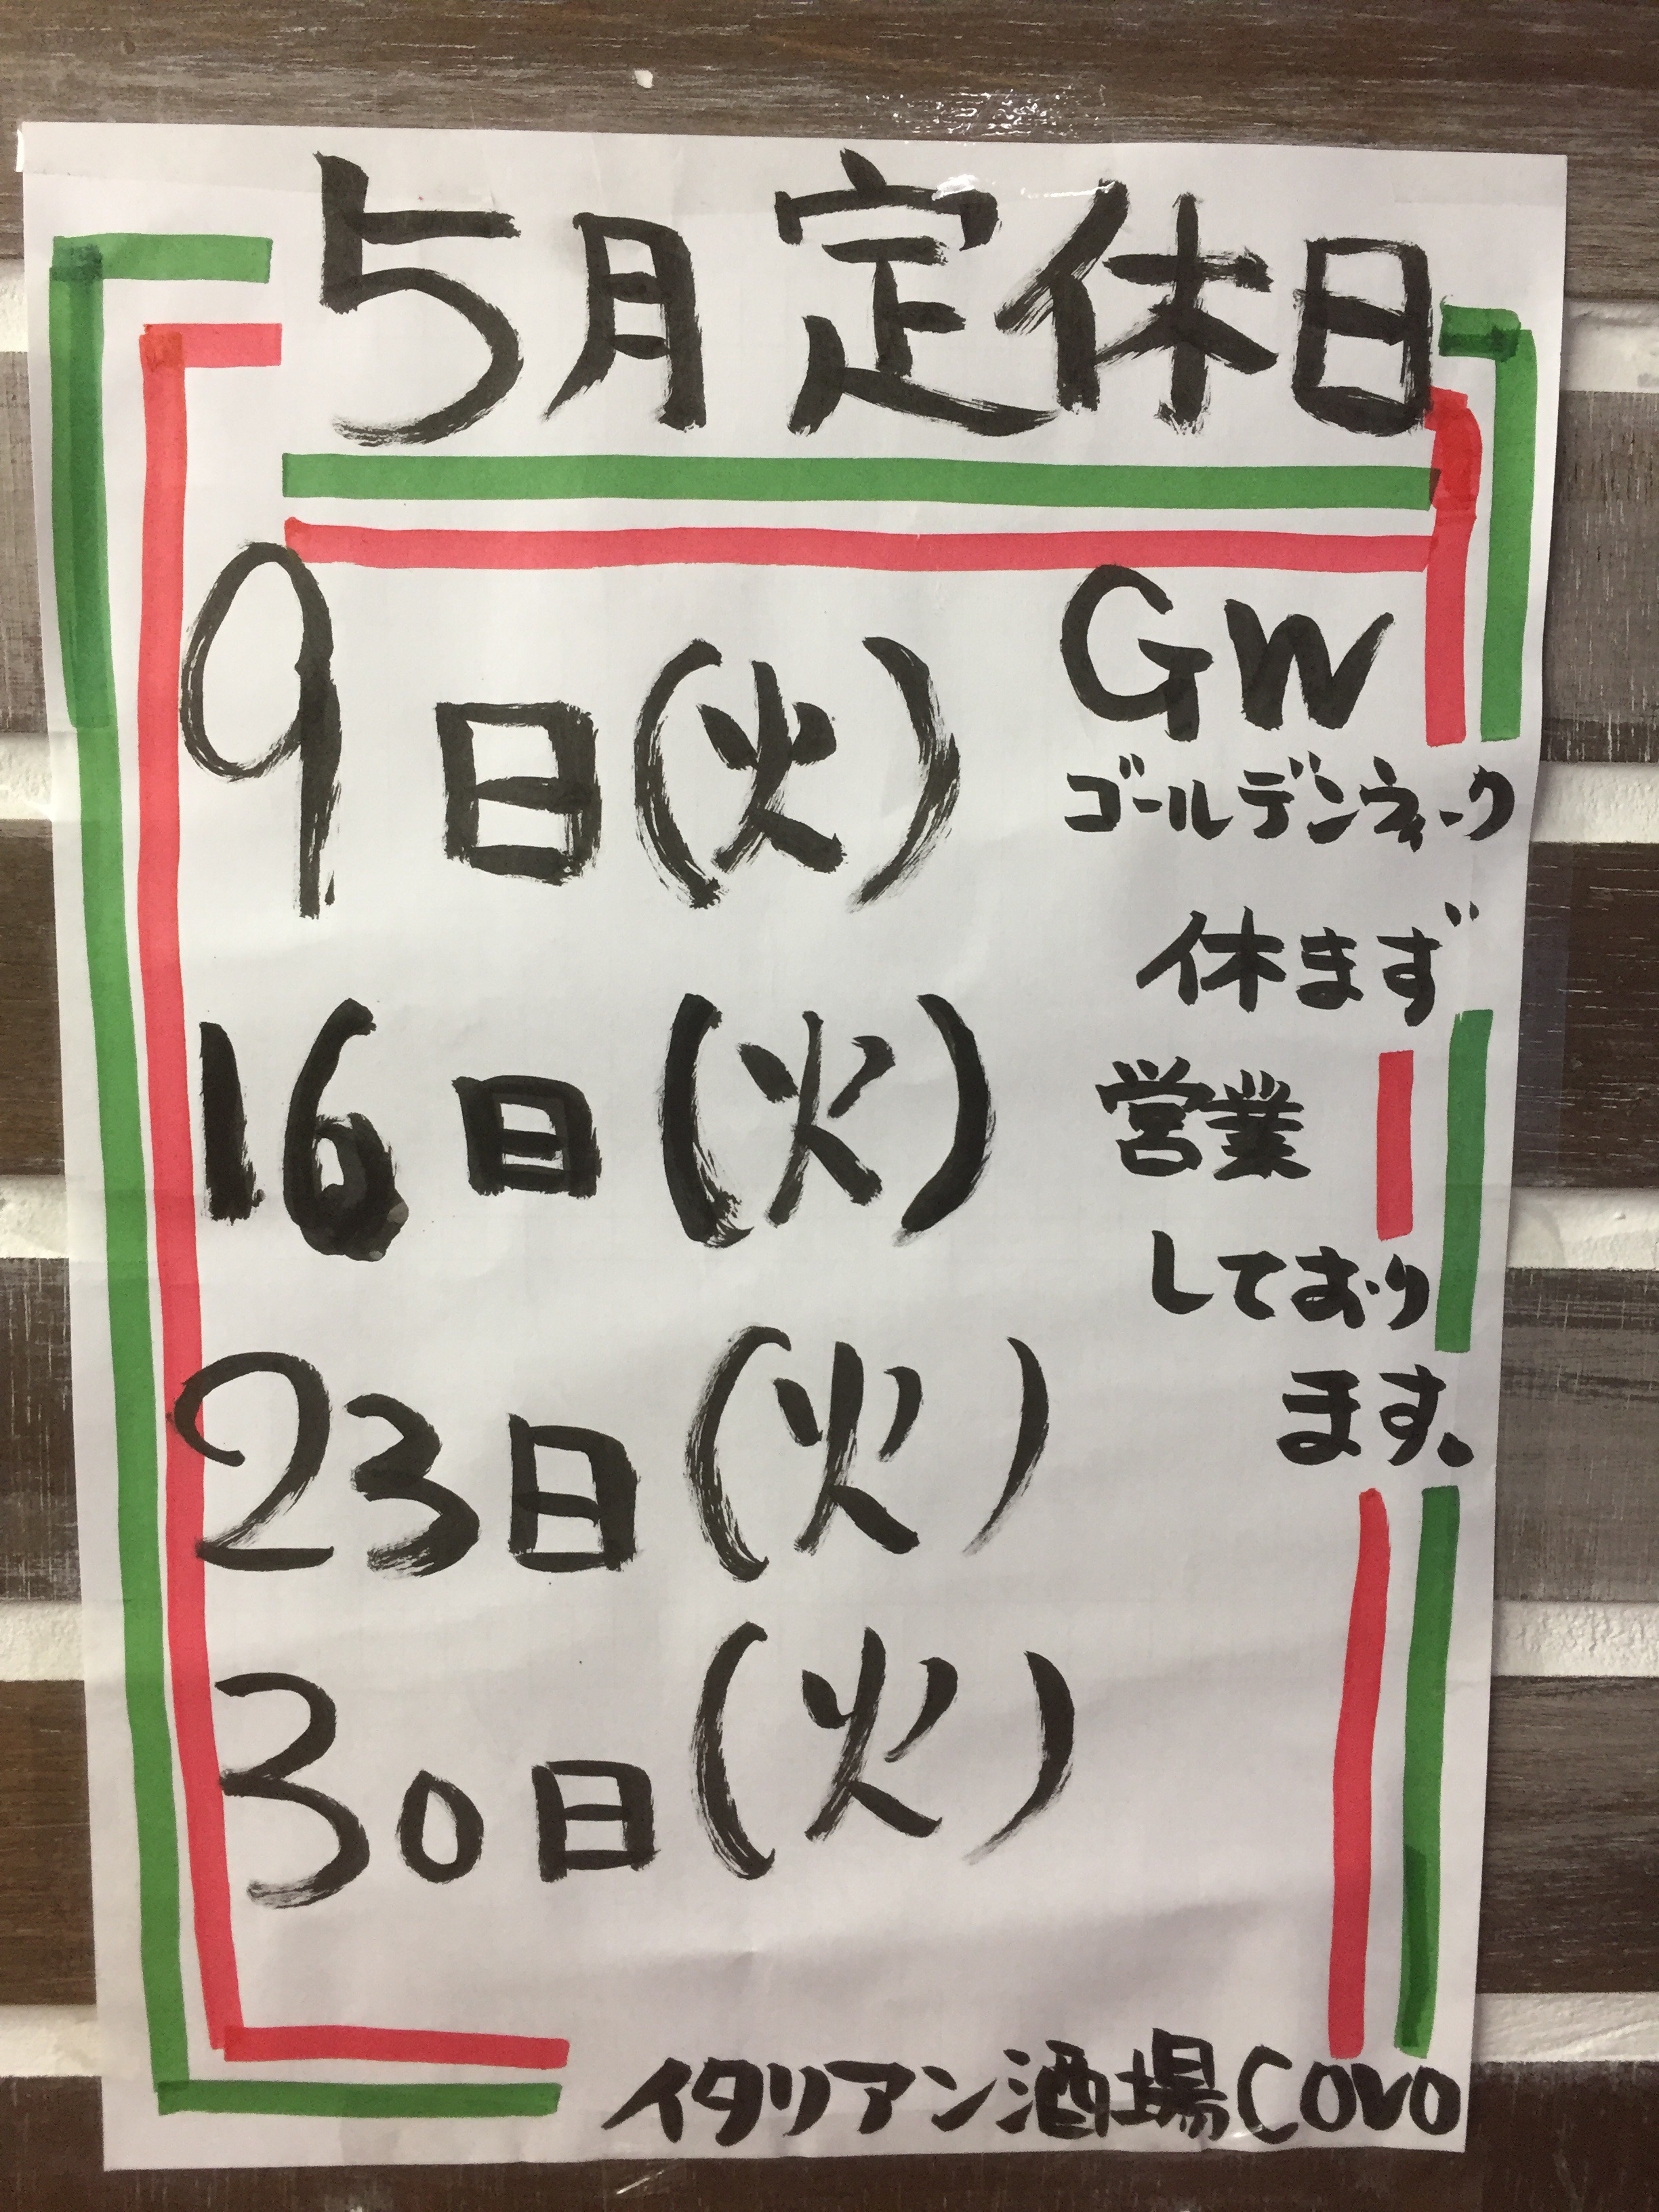 5月定休日
9日(火)
16日(火)
23日(火)
30日(火)
GW
ゴールデンウィーク
休まず
営業
しており
ます。
イタリアン酒場Covo